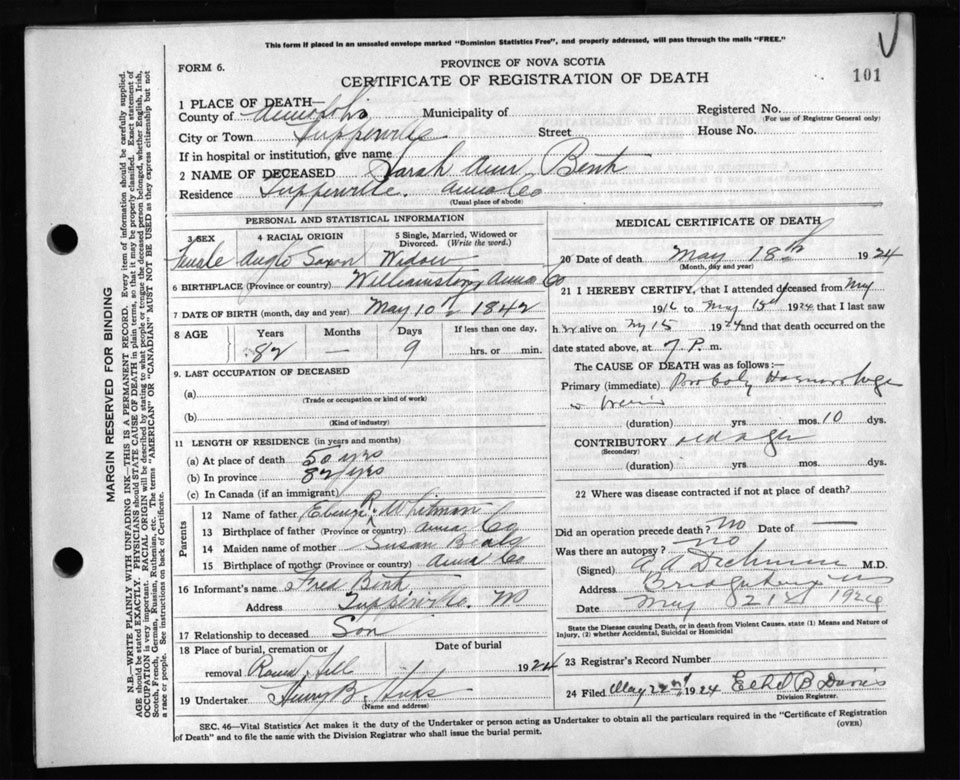 This form if placed in an unsealed envelope marked "Dominion Statistics Free", and properly addressed, will pass through the mails "FREE."
FORM 6.
PROVINCE OF NOVA SCOTIA
CERTIFICATE OF REGISTRATION OF DEATH
101
1 PLACE OF DEATH—
County of Annapolis Municipality of Registered No.
(For use of Registrar General only)
City or Town Tupperville Street House No.
If in hospital or institution, give name
2 NAME OF DECEASED Sarah Ann Bent
Residence Tupperville. Anna Co
(Usual place of abode)
PERSONAL AND STATISTICAL INFORMATION
3 SEX 4 RACIAL ORIGIN 5 Single, Married, Widowed or Divorced. (Write the word.)
Female Anglo Saxon Widow
6 BIRTHPLACE (Province or country) Williamston Anna Co
7 DATE OF BIRTH (month, day and year) May 10th 1842
8 AGE Years Months Days If less than one day,
82 — 9 hrs. or min.
9. LAST OCCUPATION OF DECEASED
(a)
(Trade or occupation or kind of work)
(b)
(Kind of industry)
11 LENGTH OF RESIDENCE (in years and months)
(a) At place of death 50 yrs
(b) In province 82 yrs
(c) In Canada (if an immigrant)
Parents
12 Name of father R. Whitman
13 Birthplace of father (Province or country) Anna Co
14 Maiden name of mother Susan Beals
15 Birthplace of mother (Province or country) Anna Co
16 Informant's name Fred Bent
Address Tupperville. NS
17 Relationship to deceased Son
18 Place of burial, cremation or removal Round Hill
Date of burial 1924
19 Undertaker Henry B. Hicks
(Name and address)
MEDICAL CERTIFICATE OF DEATH
20 Date of death May 18th 1924
(Month, day and year)
21 I HEREBY CERTIFY, that I attended deceased from May
1916 to May 1924 that I last saw
her alive on My 15 1924 and that death occurred on the
date stated above, at 7 P. m.
The CAUSE OF DEATH was as follows:
Primary (immediate) Probaly Haemorrhage
(duration) yrs mos. 10 dys.
CONTRIBUTORY old age
(Secondary)
(duration) yrs. mos. dys.
22 Where was disease contracted if not at place of death?
Did an operation precede death? No Date of —
Was there an autopsy? No
(Signed) M.D.
Address Bridgetown NS
Date May 21st 1924
State the Disease causing Death, or in death from Violent Causes, state (1) Means and Nature of Injury, (2) whether Accidental, Suicidal or Homicidal
23 Registrar's Record Number
24 Filed May 22nd, 1924 Ethel B Davis
Division Registrar.
SEC. 46—Vital Statistics Act makes it the duty of the Undertaker or person acting as Undertaker to obtain all the particulars required in the "Certificate of Registration
of Death" and to file the same with the Division Registrar who shall issue the burial permit.
(OVER)
MARGIN RESERVED FOR BINDING
N.B.—WRITE PLAINLY WITH UNFADING INK—THIS IS A PERMANENT RECORD. Every item of information should be carefully supplied.
AGE should be stated EXACTLY. PHYSICIANS should STATE CAUSE OF DEATH in plain terms, so that it may be properly classified. Exact statement of
OCCUPATION is very important. RACIAL ORIGIN will be described by stating to what people or tongue the deceased person belonged, whether English, Irish,
Scotch, French, German, Russian, Ruthenian, etc. The terms "AMERICAN" OR "CANADIAN" MUST NOT BE USED as they express citizenship but not
a race or people. See instructions on back of Certificate.